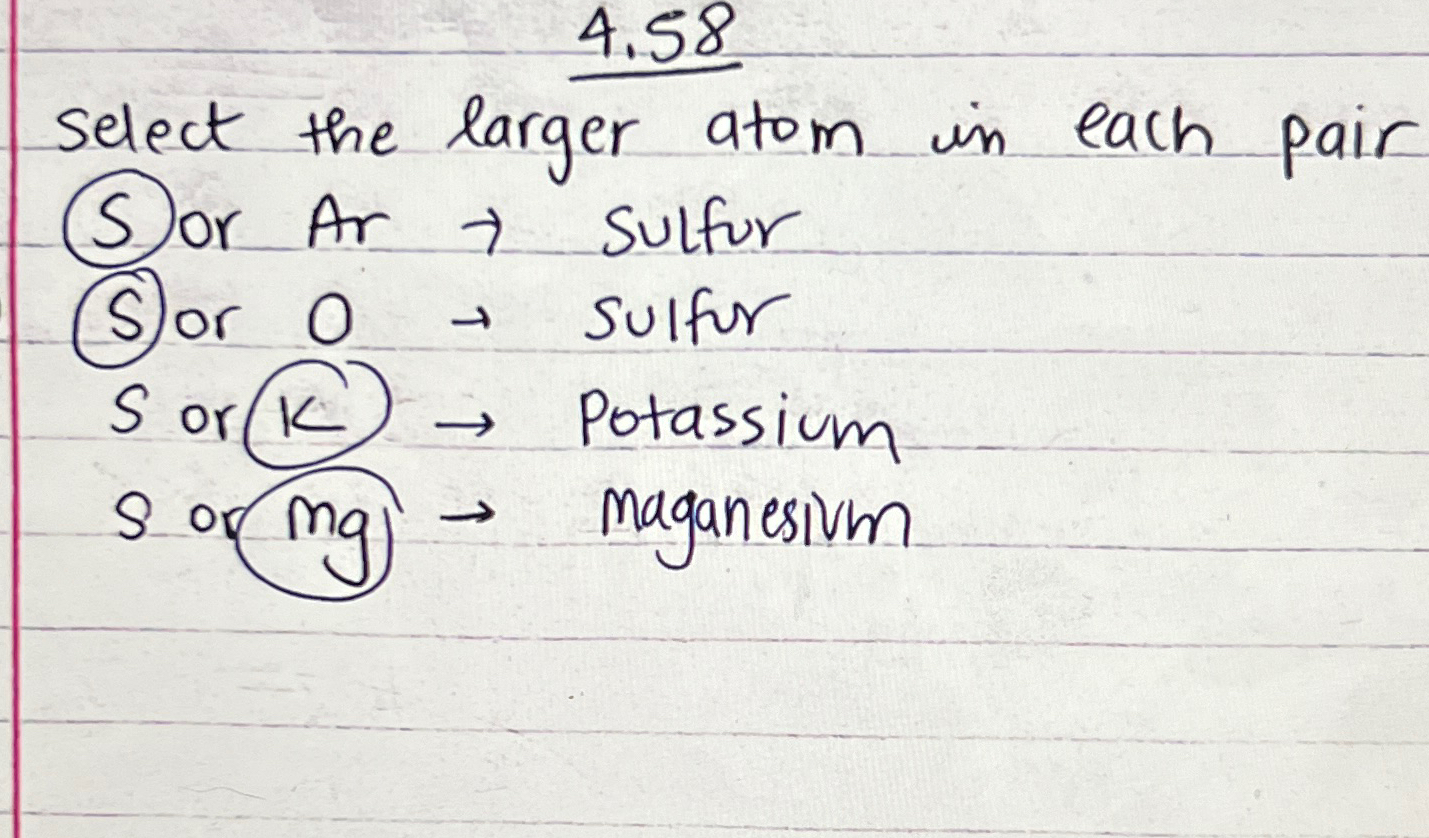 4.58
Select the larger atom in each pair
S or Ar → Sulfur
S or O → Sulfur
S or K → Potassium
S or Mg → Maganesium